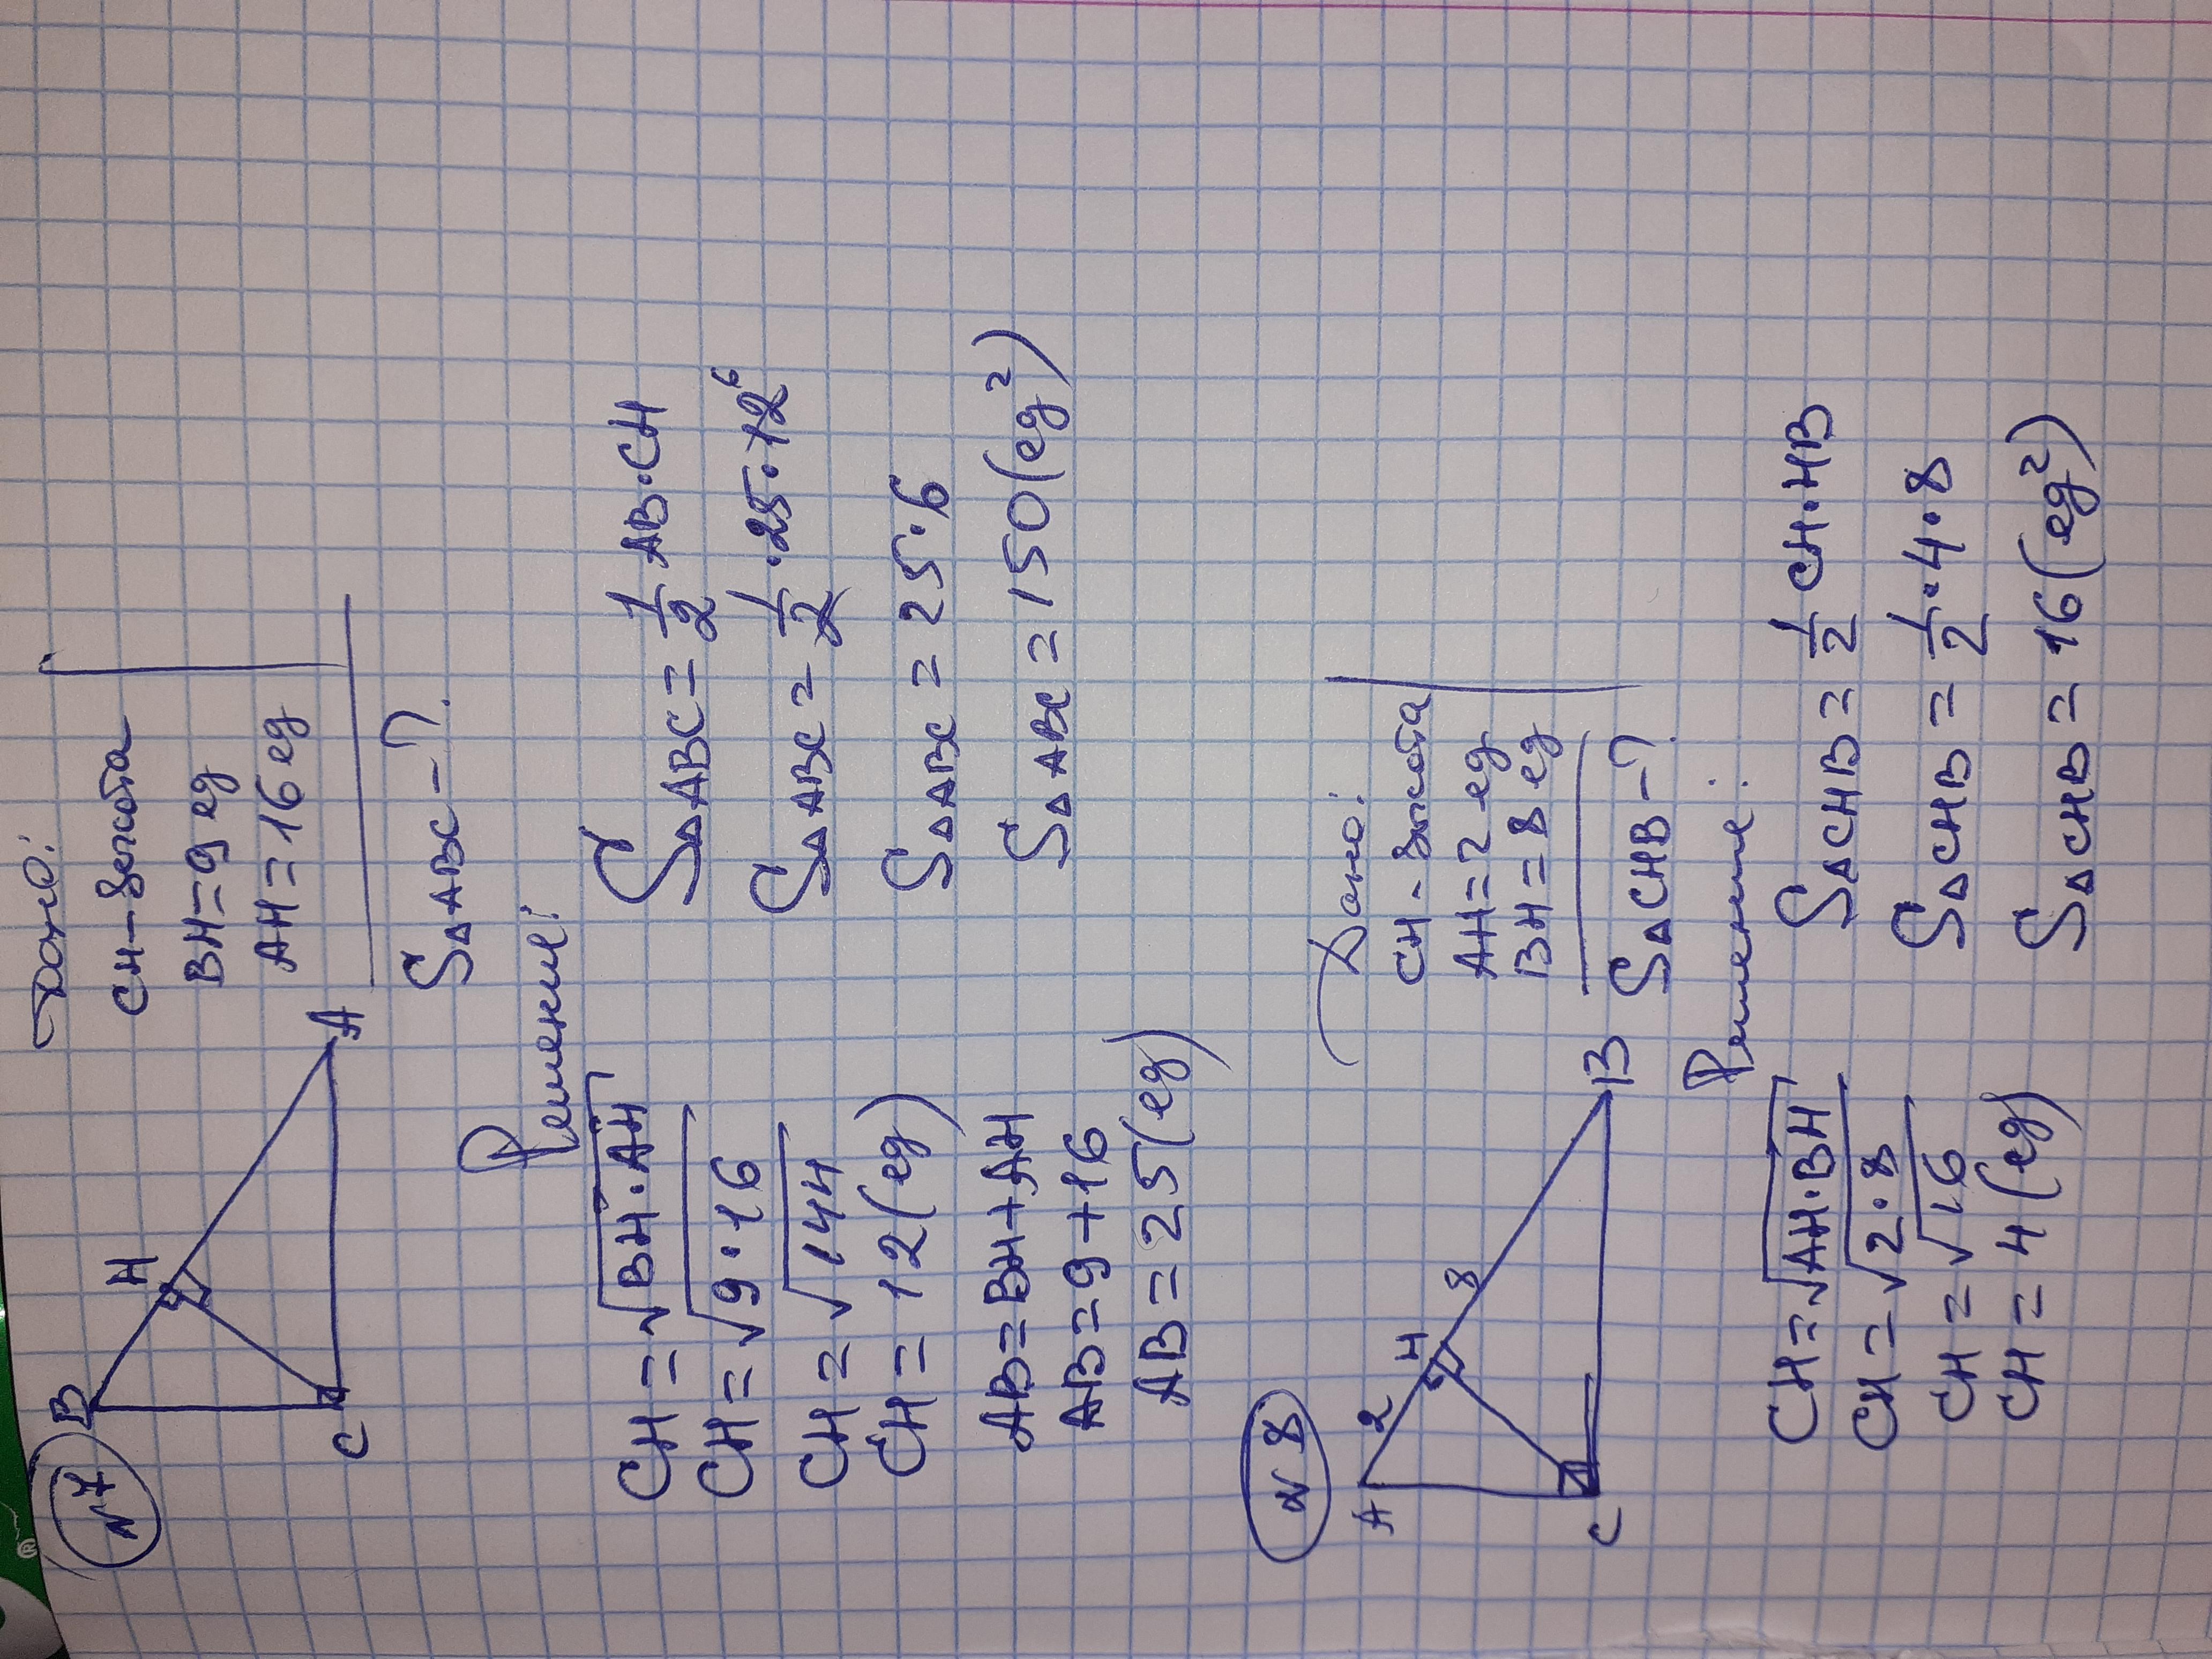 N7
B
H
A
C
Дано:
CH - высота
BH = 9 ед
AH = 16 ед
S△ABC - ?
Решение:
CH = √BH·AH
CH = √9·16
CH = √144
CH = 12 (ед)
AB = BH + AH
AB = 9 + 16
AB = 25 (ед)
S△ABC = 1/2 AB·CH
S△ABC = 1/2 · 25 · 12 6
S△ABC = 25·6
S△ABC = 150 (ед²)
N 8
A
2
H
8
B
C
Дано:
CH - высота
AH = 2 ед
BH = 8 ед
S△CHB - ?
Решение:
CH = √AH·BH
CH = √2·8
CH = √16
CH = 4 (ед)
S△CHB = 1/2 CH·HB
S△CHB = 1/2 · 4 · 8
S△CHB = 16 (ед²)
®